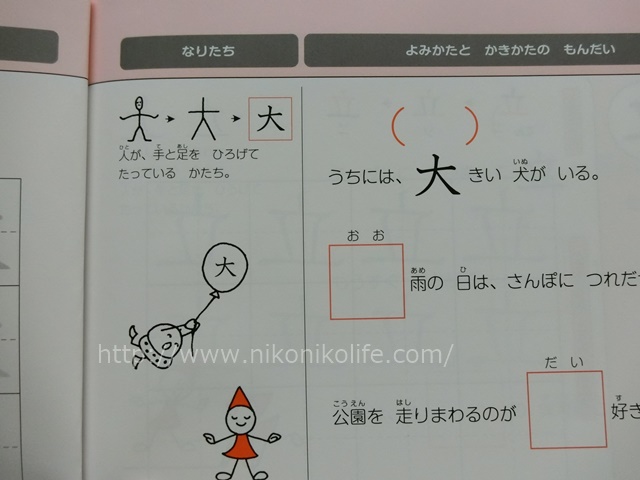 なりたち
よみかたと かきかたの もんだい
大
ひと て あし
人が、手と足を ひろげて
たっている かたち。
( )
いぬ
うちには、大きい 犬が いる。
大
おお
あめ ひ
雨の 日は、さんぽに つれだ
http://www.nikonikolife.com/
だい
こうえん はし す
公園を 走りまわるのが 好き